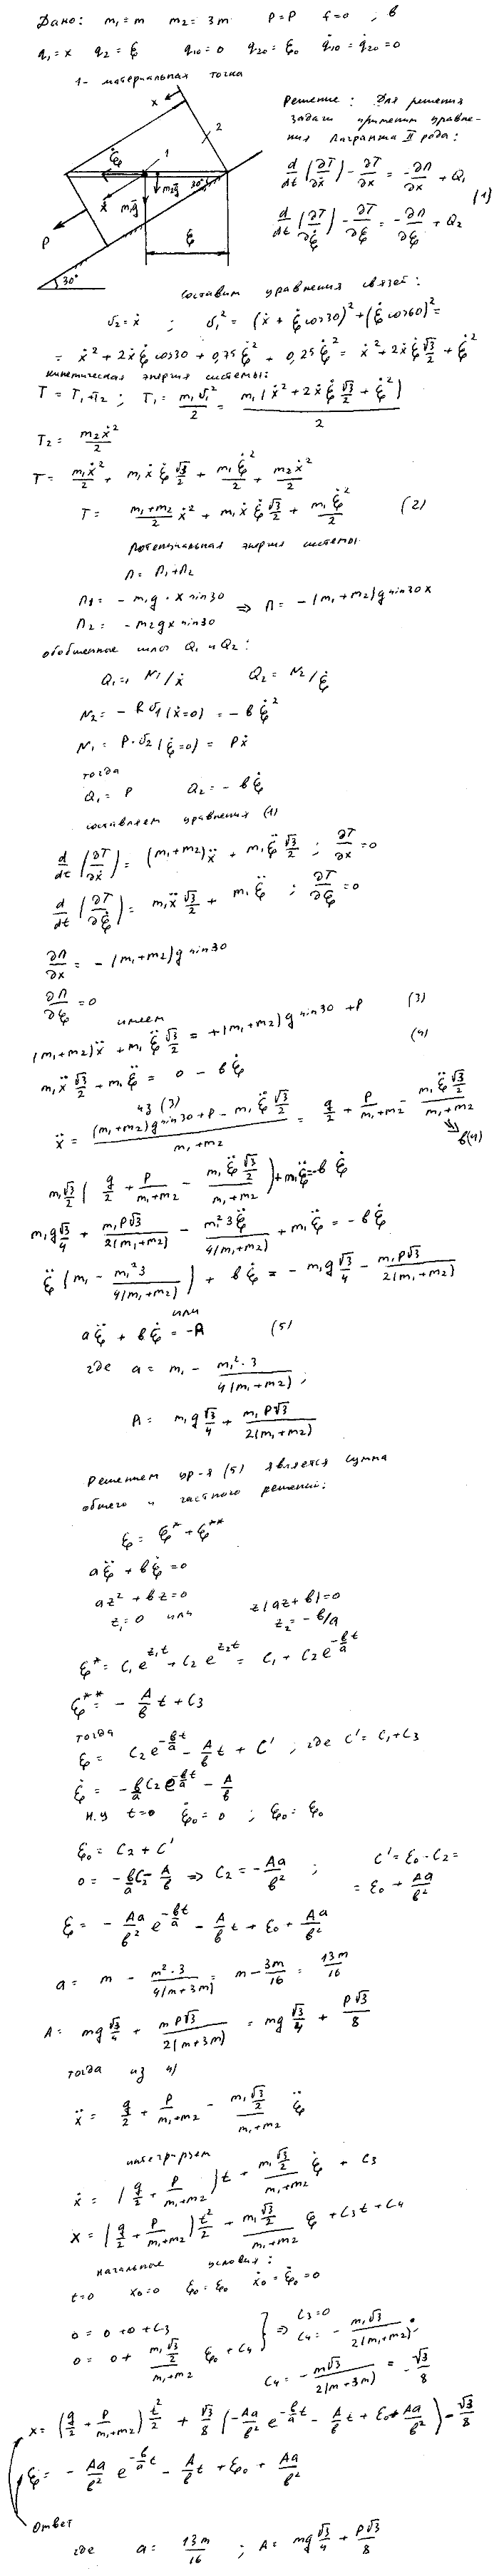 Дано: m₁ = m m₂ = 3m P = P f = 0 ; b
q₁ = x q₂ = ξ q₁₀ = 0 q₂₀ = ξ₀ q̇₁₀ = q̇₂₀ = 0
1 - материальная точка
x
2
ξ̇
1
30°
ẋ
m₁g
m₂g
P
ξ
30°
Решение: Для решения
задачи применим уравне-
ния Лагранжа II рода:
d/dt (∂T/∂ẋ) - ∂T/∂x = -∂П/∂x + Q₁
(1)
d/dt (∂T/∂ξ̇) - ∂T/∂ξ = -∂П/∂ξ + Q₂
Составим уравнения связей:
v₂ = ẋ ; v₁² = (ẋ + ξ̇ cos30)² + (ξ̇ cos60)² =
= ẋ² + 2ẋξ̇ cos30 + 0,75ξ̇² + 0,25ξ̇² = ẋ² + 2ẋξ̇ √3/2 + ξ̇²
кинетическая энергия системы:
T = T₁ + T₂ ; T₁ = m₁v₁²/2 = m₁(ẋ² + 2ẋξ̇ √3/2 + ξ̇²)/2
T₂ = m₂ẋ²/2
T = m₁ẋ²/2 + m₁ẋξ̇ √3/2 + m₁ξ̇²/2 + m₂ẋ²/2
T = (m₁+m₂)/2 ẋ² + m₁ẋξ̇ √3/2 + m₁ξ̇²/2 (2)
потенциальная энергия системы
П = П₁ + П₂
П₁ = - m₁g · x sin30
⇒ П = -(m₁+m₂)g sin30 x
П₂ = - m₂gx sin30
обобщенные силы Q₁ и Q₂:
Q₁ = N₁/ẋ Q₂ = N₂/ξ̇
N₂ = - b v₁(ẋ=0) = - b ξ̇²
N₁ = P · v₂(ξ̇=0) = Pẋ
тогда
Q₁ = P Q₂ = - bξ̇
составляем уравнения (1)
d/dt (∂T/∂ẋ) = (m₁+m₂)ẍ + m₁ξ̈ √3/2 ; ∂T/∂x = 0
d/dt (∂T/∂ξ̇) = m₁ẍ √3/2 + m₁ξ̈ ; ∂T/∂ξ = 0
∂П/∂x = -(m₁+m₂)g sin30
∂П/∂ξ = 0
имеем
(m₁+m₂)ẍ + m₁ξ̈ √3/2 = +(m₁+m₂)g sin30 + P (3)
m₁ẍ √3/2 + m₁ξ̈ = 0 - bξ̇ (4)
из (3)
ẍ = ((m₁+m₂)g sin30 + P - m₁ξ̈ √3/2)/(m₁+m₂) = g/2 + P/(m₁+m₂) - (m₁ξ̈ √3/2)/(m₁+m₂)
⇘ в(4)
m₁√3/2 (g/2 + P/(m₁+m₂) - (m₁ξ̈ √3/2)/(m₁+m₂)) + m₁ξ̈ = -b ξ̇
m₁g √3/4 + m₁P√3/(2(m₁+m₂)) - m₁²3ξ̈/(4(m₁+m₂)) + m₁ξ̈ = - bξ̇
ξ̈ (m₁ - m₁²3/(4(m₁+m₂))) + bξ̇ = - m₁g √3/4 - m₁P√3/(2(m₁+m₂))
или
aξ̈ + bξ̇ = -A (5)
где a = m₁ - m₁²·3/(4(m₁+m₂)) ;
A = m₁g √3/4 + m₁P√3/(2(m₁+m₂))
Решением ур-я (5) является сумма
общего и частного решений:
ξ = ξ* + ξ**
aξ̈ + bξ̇ = 0
az² + bz = 0 z(az+b) = 0
z₁ = 0 или z₂ = - b/a
ξ* = C₁e^(z₁t) + C₂e^(z₂t) = C₁ + C₂e^(-b/a t)
ξ** = - A/b t + C₃
тогда
ξ = C₂e^(-b/a t) - A/b t + C' ; где C' = C₁+C₃
ξ̇ = - b/a C₂e^(-b/a t) - A/b
н.у t=0 ξ̇₀ = 0 ; ξ₀ = ξ₀
ξ₀ = C₂ + C' C' = ξ₀ - C₂ =
0 = - b/a C₂ - A/b ⇒ C₂ = - Aa/b² ; = ξ₀ + Aa/b²
ξ = - Aa/b² e^(-b/a t) - A/b t + ξ₀ + Aa/b²
a = m - m²·3/(4(m+3m)) = m - 3m/16 = 13m/16
A = mg √3/4 + mP√3/(2(m+3m)) = mg √3/4 + P√3/8
тогда из 4)
ẍ = g/2 + P/(m₁+m₂) - (m₁√3/2)/(m₁+m₂) ξ̈
интегрируем
ẋ = (g/2 + P/(m₁+m₂))t + (m₁√3/2)/(m₁+m₂) ξ̇ + C₃
x = (g/2 + P/(m₁+m₂)) t²/2 + (m₁√3/2)/(m₁+m₂) ξ + C₃t + C₄
начальные условия:
t=0 x₀=0 ξ₀=ξ₀ ẋ₀=ξ̇₀=0
0 = 0 + 0 + C₃
0 = 0 + (m₁√3/2)/(m₁+m₂) ξ₀ + C₄
} ⇒ C₃ = 0
C₄ = - m₁√3/(2(m₁+m₂)) ·
C₄ = - m√3/(2(m+3m)) = - √3/8
x = (g/2 + P/(m₁+m₂)) t²/2 + √3/8 (- Aa/b² e^(-b/a t) - A/b t + ξ₀ + Aa/b²) - √3/8
ξ = - Aa/b² e^(-b/a t) - A/b t + ξ₀ + Aa/b²
Ответ
где a = 13m/16 ; A = mg √3/4 + P√3/8